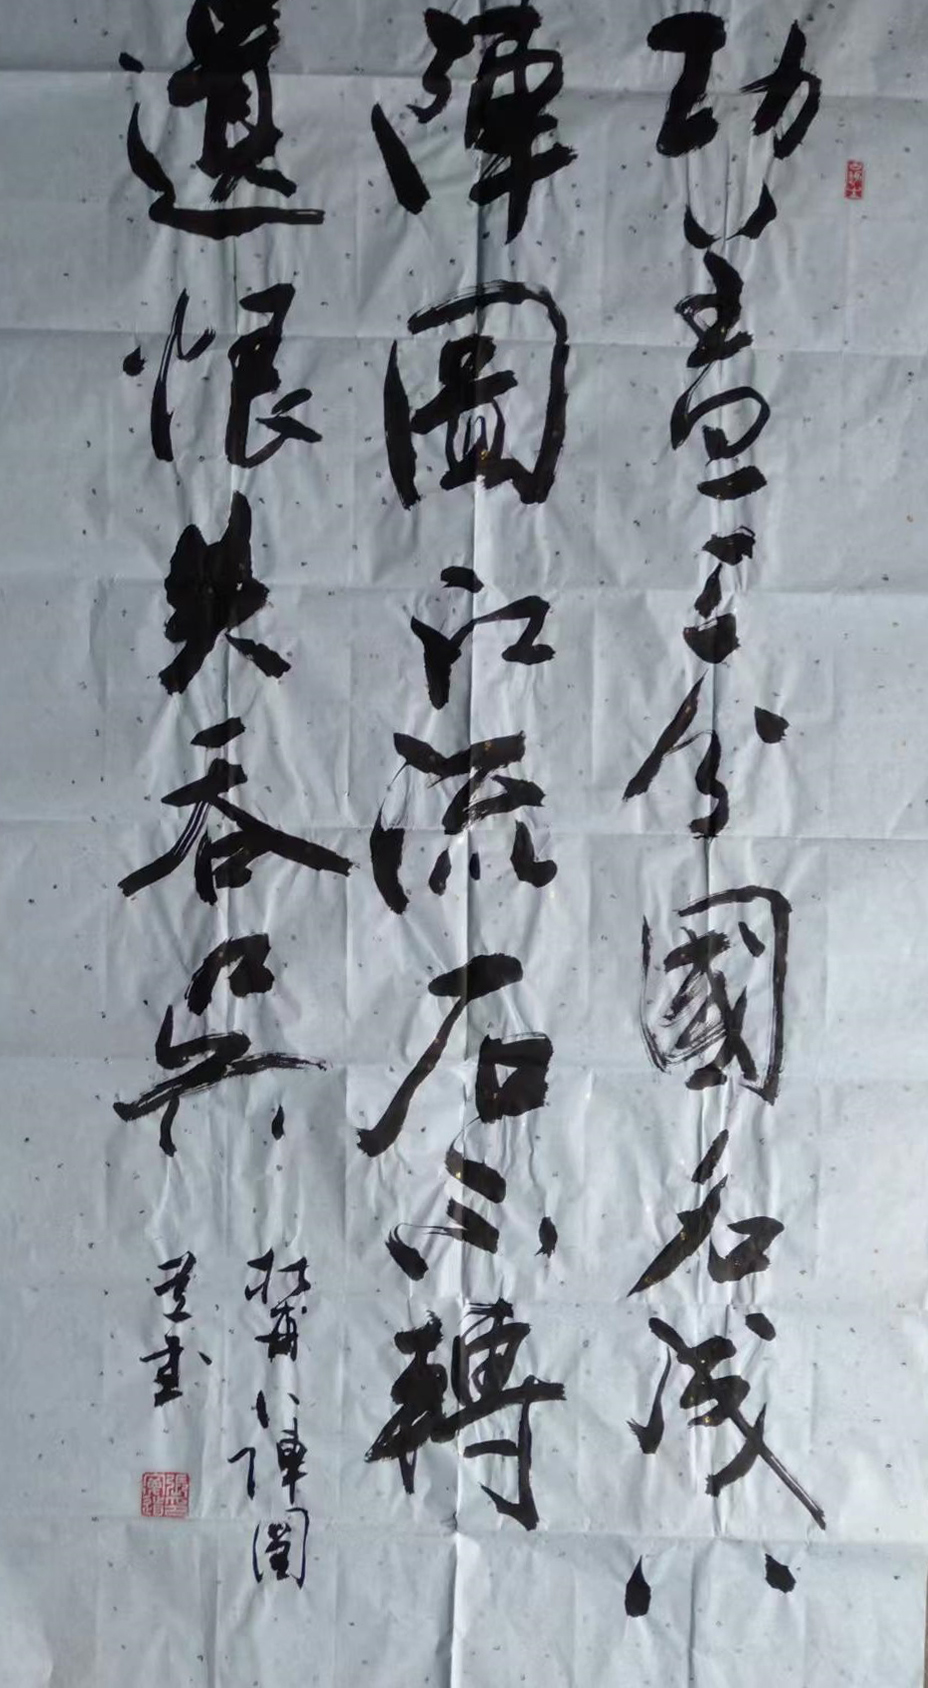 功蓋三分國名成八
陣圖江流石不轉
遺恨失吞吳
杜甫八陣圖